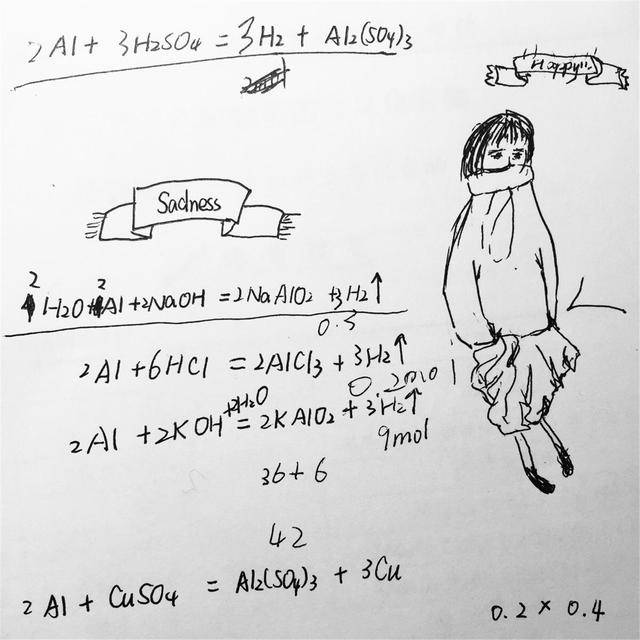 2Al + 3H2SO4 = 3H2 + Al2(SO4)3
Happy!!!
Sadness
2H2O + 2Al + 2NaOH = 2NaAlO2 + 3H2↑
0.3
2Al + 6HCl = 2AlCl3 + 3H2↑
0.2mol
2Al + 2KOH + 2H2O = 2KAlO2 + 3H2↑
9mol
36 + 6
42
2Al + CuSO4 = Al2(SO4)3 + 3Cu
0.2 × 0.4